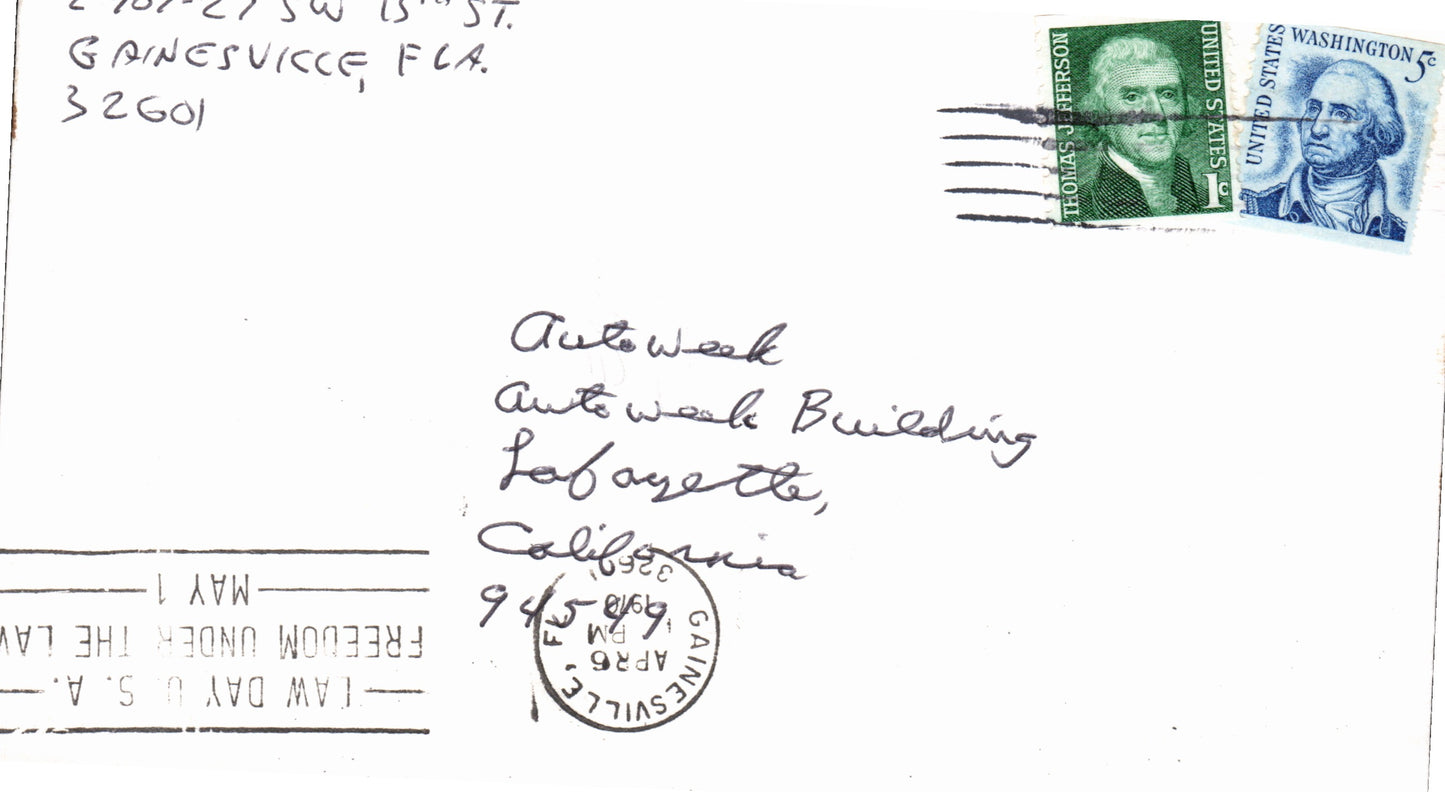 SW 13th ST.
GAINESVILLE, FLA.
32601
THOMAS JEFFERSON
UNITED STATES
1c
UNITED STATES
WASHINGTON 5c
Autoweek
Autoweek Building
Lafayette,
California
94549
GAINESVILLE, FL
APR 6
PM
1970
3260
LAW DAY U.S.A.
FREEDOM UNDER THE LAW
MAY 1